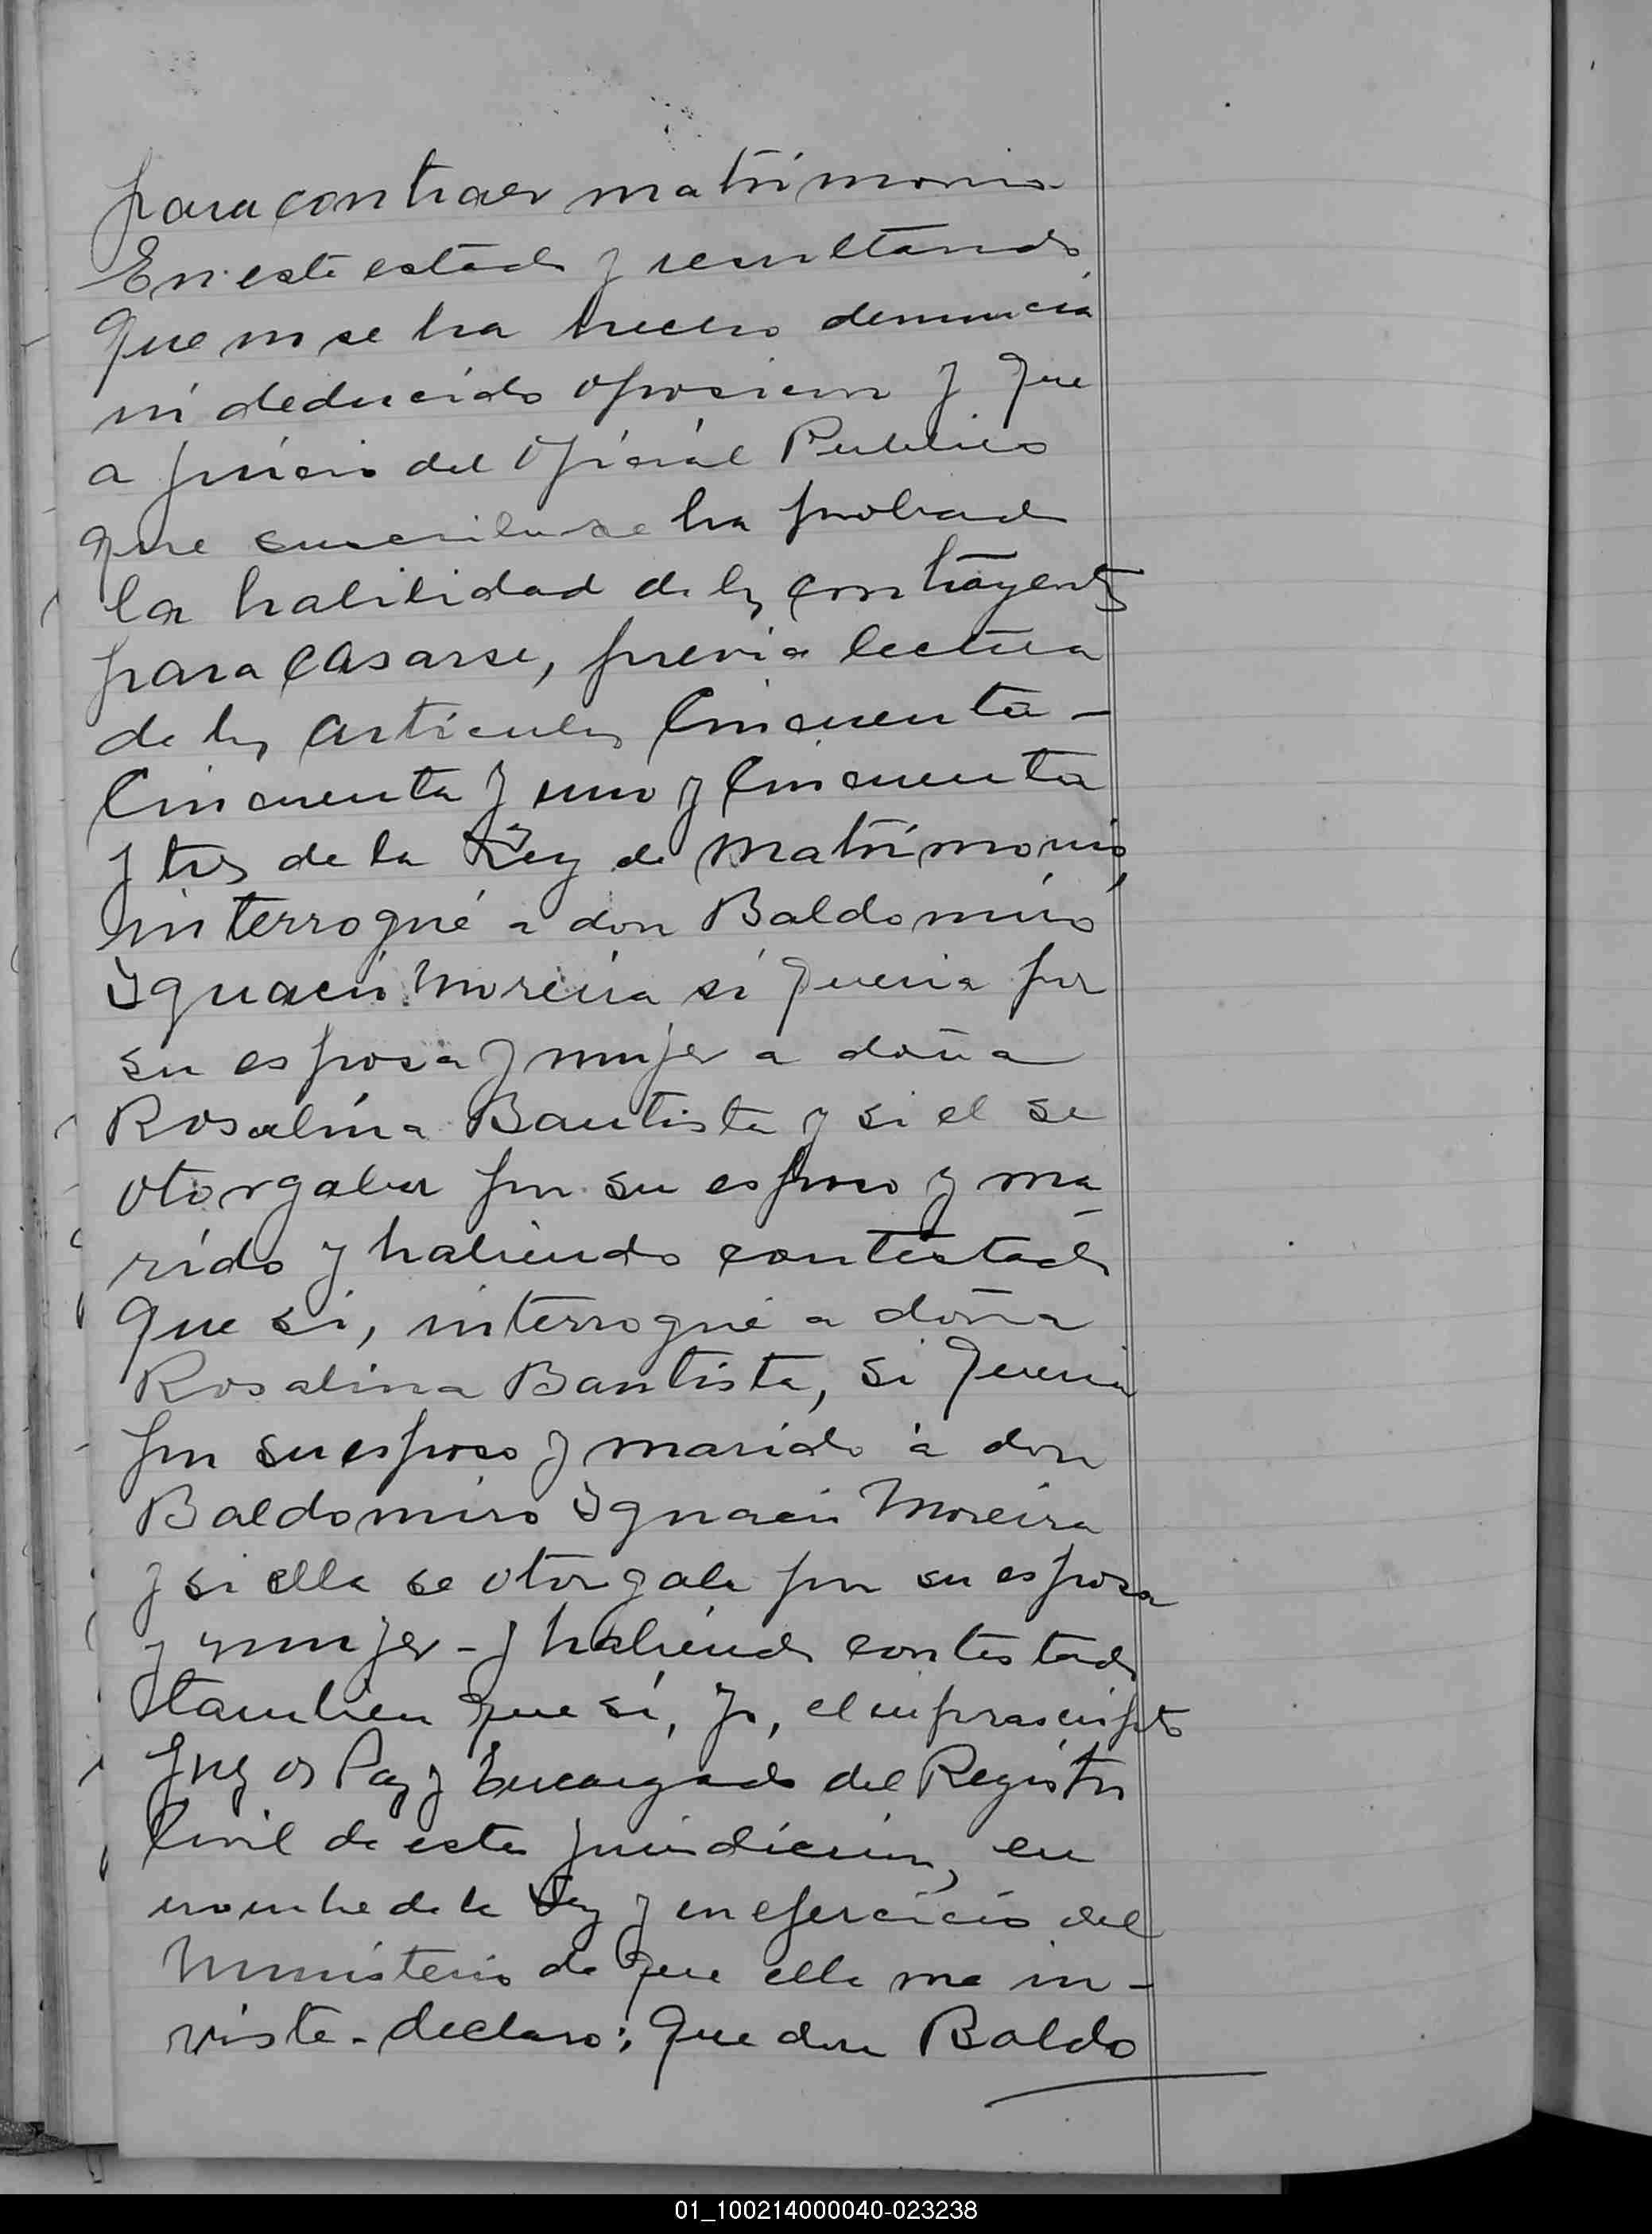 para contraer matrimonio
En este estado y resultando
que no se ha hecho denuncia
ni deducido oposicion y que
a juicio del Oficial Publico
que suscribe se ha probado
la habilidad de los contrayentes
para casarse, previa lectura
de los articulos Cincuenta -
Cincuenta y uno y Cincuenta
y tres de la Ley de Matrimonio,
interrogué a don Baldomiro
Ygnacio Moreira si queria por
su esposa y mujer a doña
Rosalina Bautista y si el se
otorgaba por su esposo y ma
rido y habiendo contestado
que si, interrogué a doña
Rosalina Bautista, si queria
por su esposo y marido á don
Baldomiro Ygnacio Moreira
y si ella se otorgaba por su esposa
y mujer - y habiendo contestado
tambien que sí, yo, el infrascripto
Juez de Paz y Encargado del Registro
Civil de esta jurisdicción, en
nombre de la Ley y en ejercicio del
Ministerio de que ella me in-
viste - declaro: que don Baldo
01_100214000040-023238